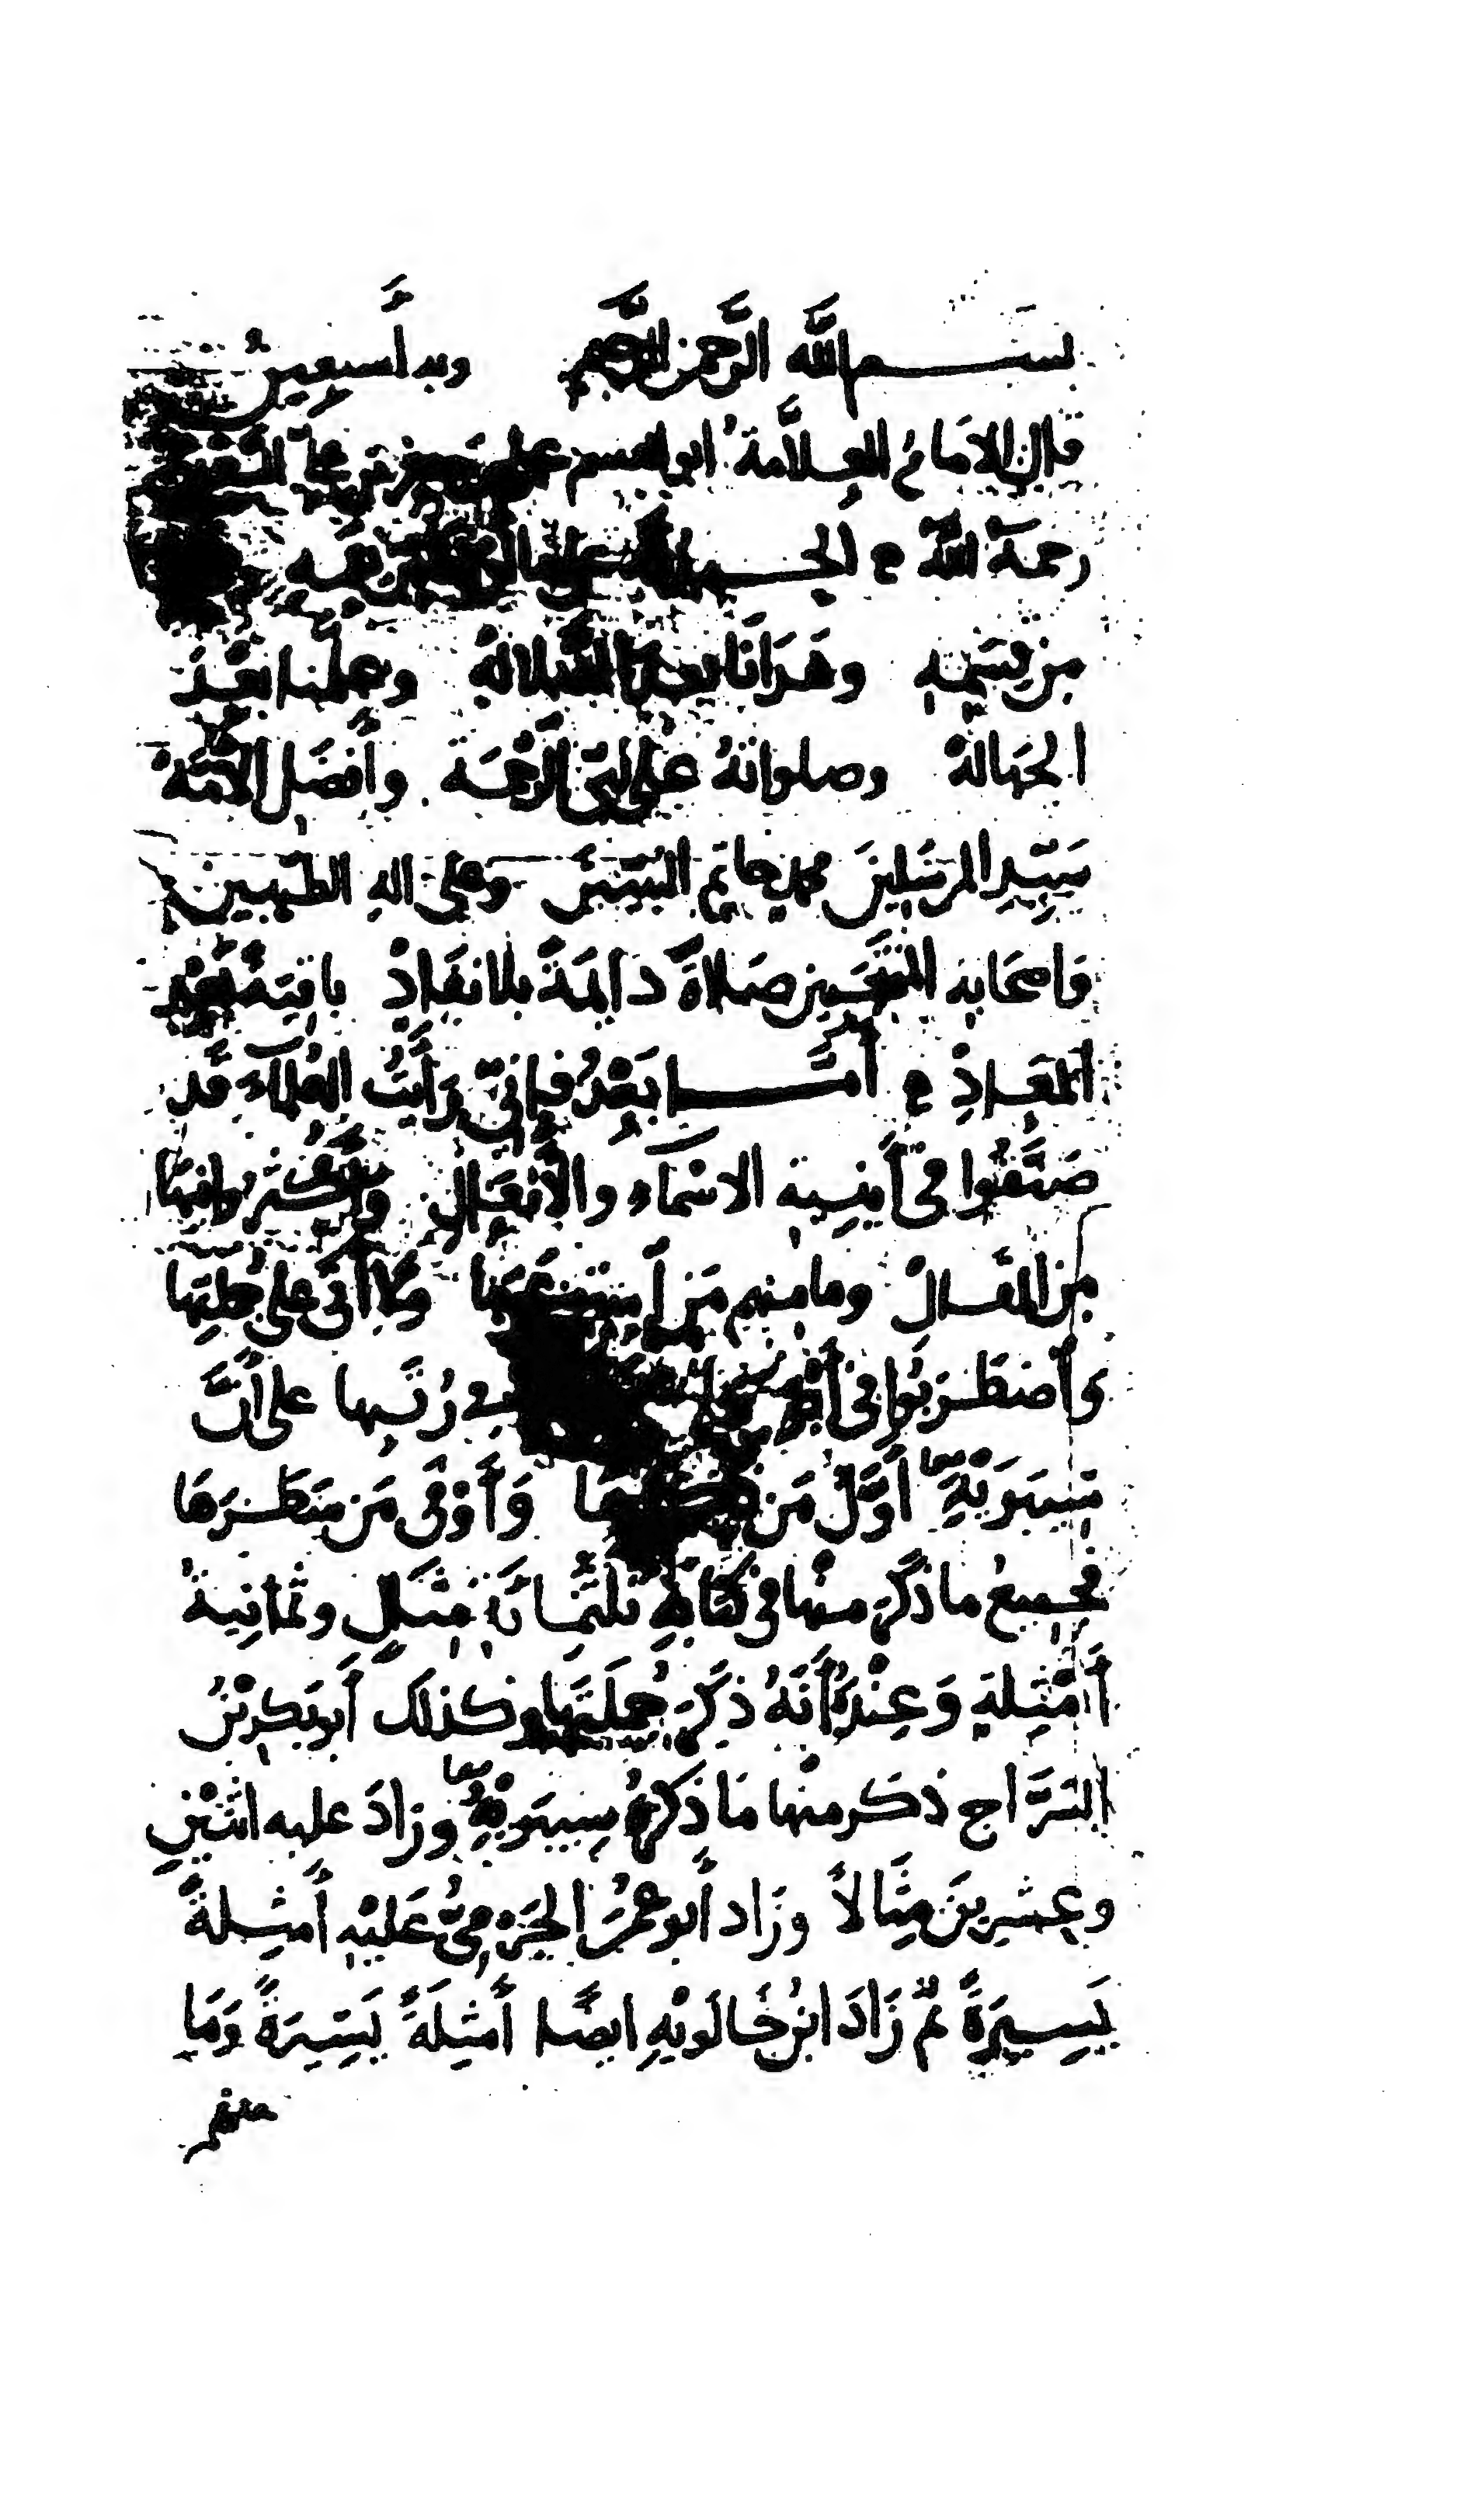 بسم الله الرحمن الرحيم وبه أستعين
قال الامام العلامة ابو القسم علي بن جعفر بن علي السعدي
رحمه الله الحمد لله على ما نعمه
من قسمه وهدانا بعد الضلالة وعلمنا بعد
الجهالة وصلواته على نبي الرحمة وأفضل الأئمة
سيد المرسلين محمد خاتم النبيين وعلى اله الطيبين
واصحابه المنتجبين صلاة دائمة بلا نفاد باقية
المعاد أما بعد فإني رأيت العلماء قد
صنفوا في أبنية الاسماء والأفعال وأكثروا فيها
من المقال وما منهم من استوعبها ولا أتى على جملتها
وأضطربوا في في رتبها على أن
سيبويه أول من ذكرها وأوفى من سطرها
فجميع ما ذكر منها في كتابه ثلثمائة مثال وثمانية
أمثلة وعنده أنه ذكر جملتها وكذلك أبو بكر بن
السراج ذكر منها ما ذكره سيبويه وزاد عليه اثنين
وعشرين مثالاً وزاد أبو عمر الجرمي عليه أمثلة
يسيرة ثم زاد ابن خالويه ايضا أمثلة يسيرة وما
منهم